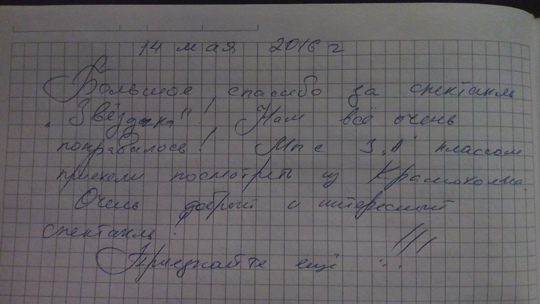 14 мая 2016 г
Большое спасибо за спектакль
„Звёздный"! Нам всё очень
понравилось! Мы с 3 „А" классом
приехали посмотреть из Краснохолма.
Очень добрый и интересный
спектакль!
Приезжайте ещё !!!